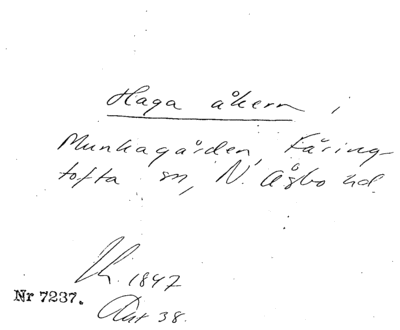 Haga åkern,
Munkagården, Färing-
tofta sn, N. Åsbo hd.
Lh. 1847
Nr 7237.
Akt 38.